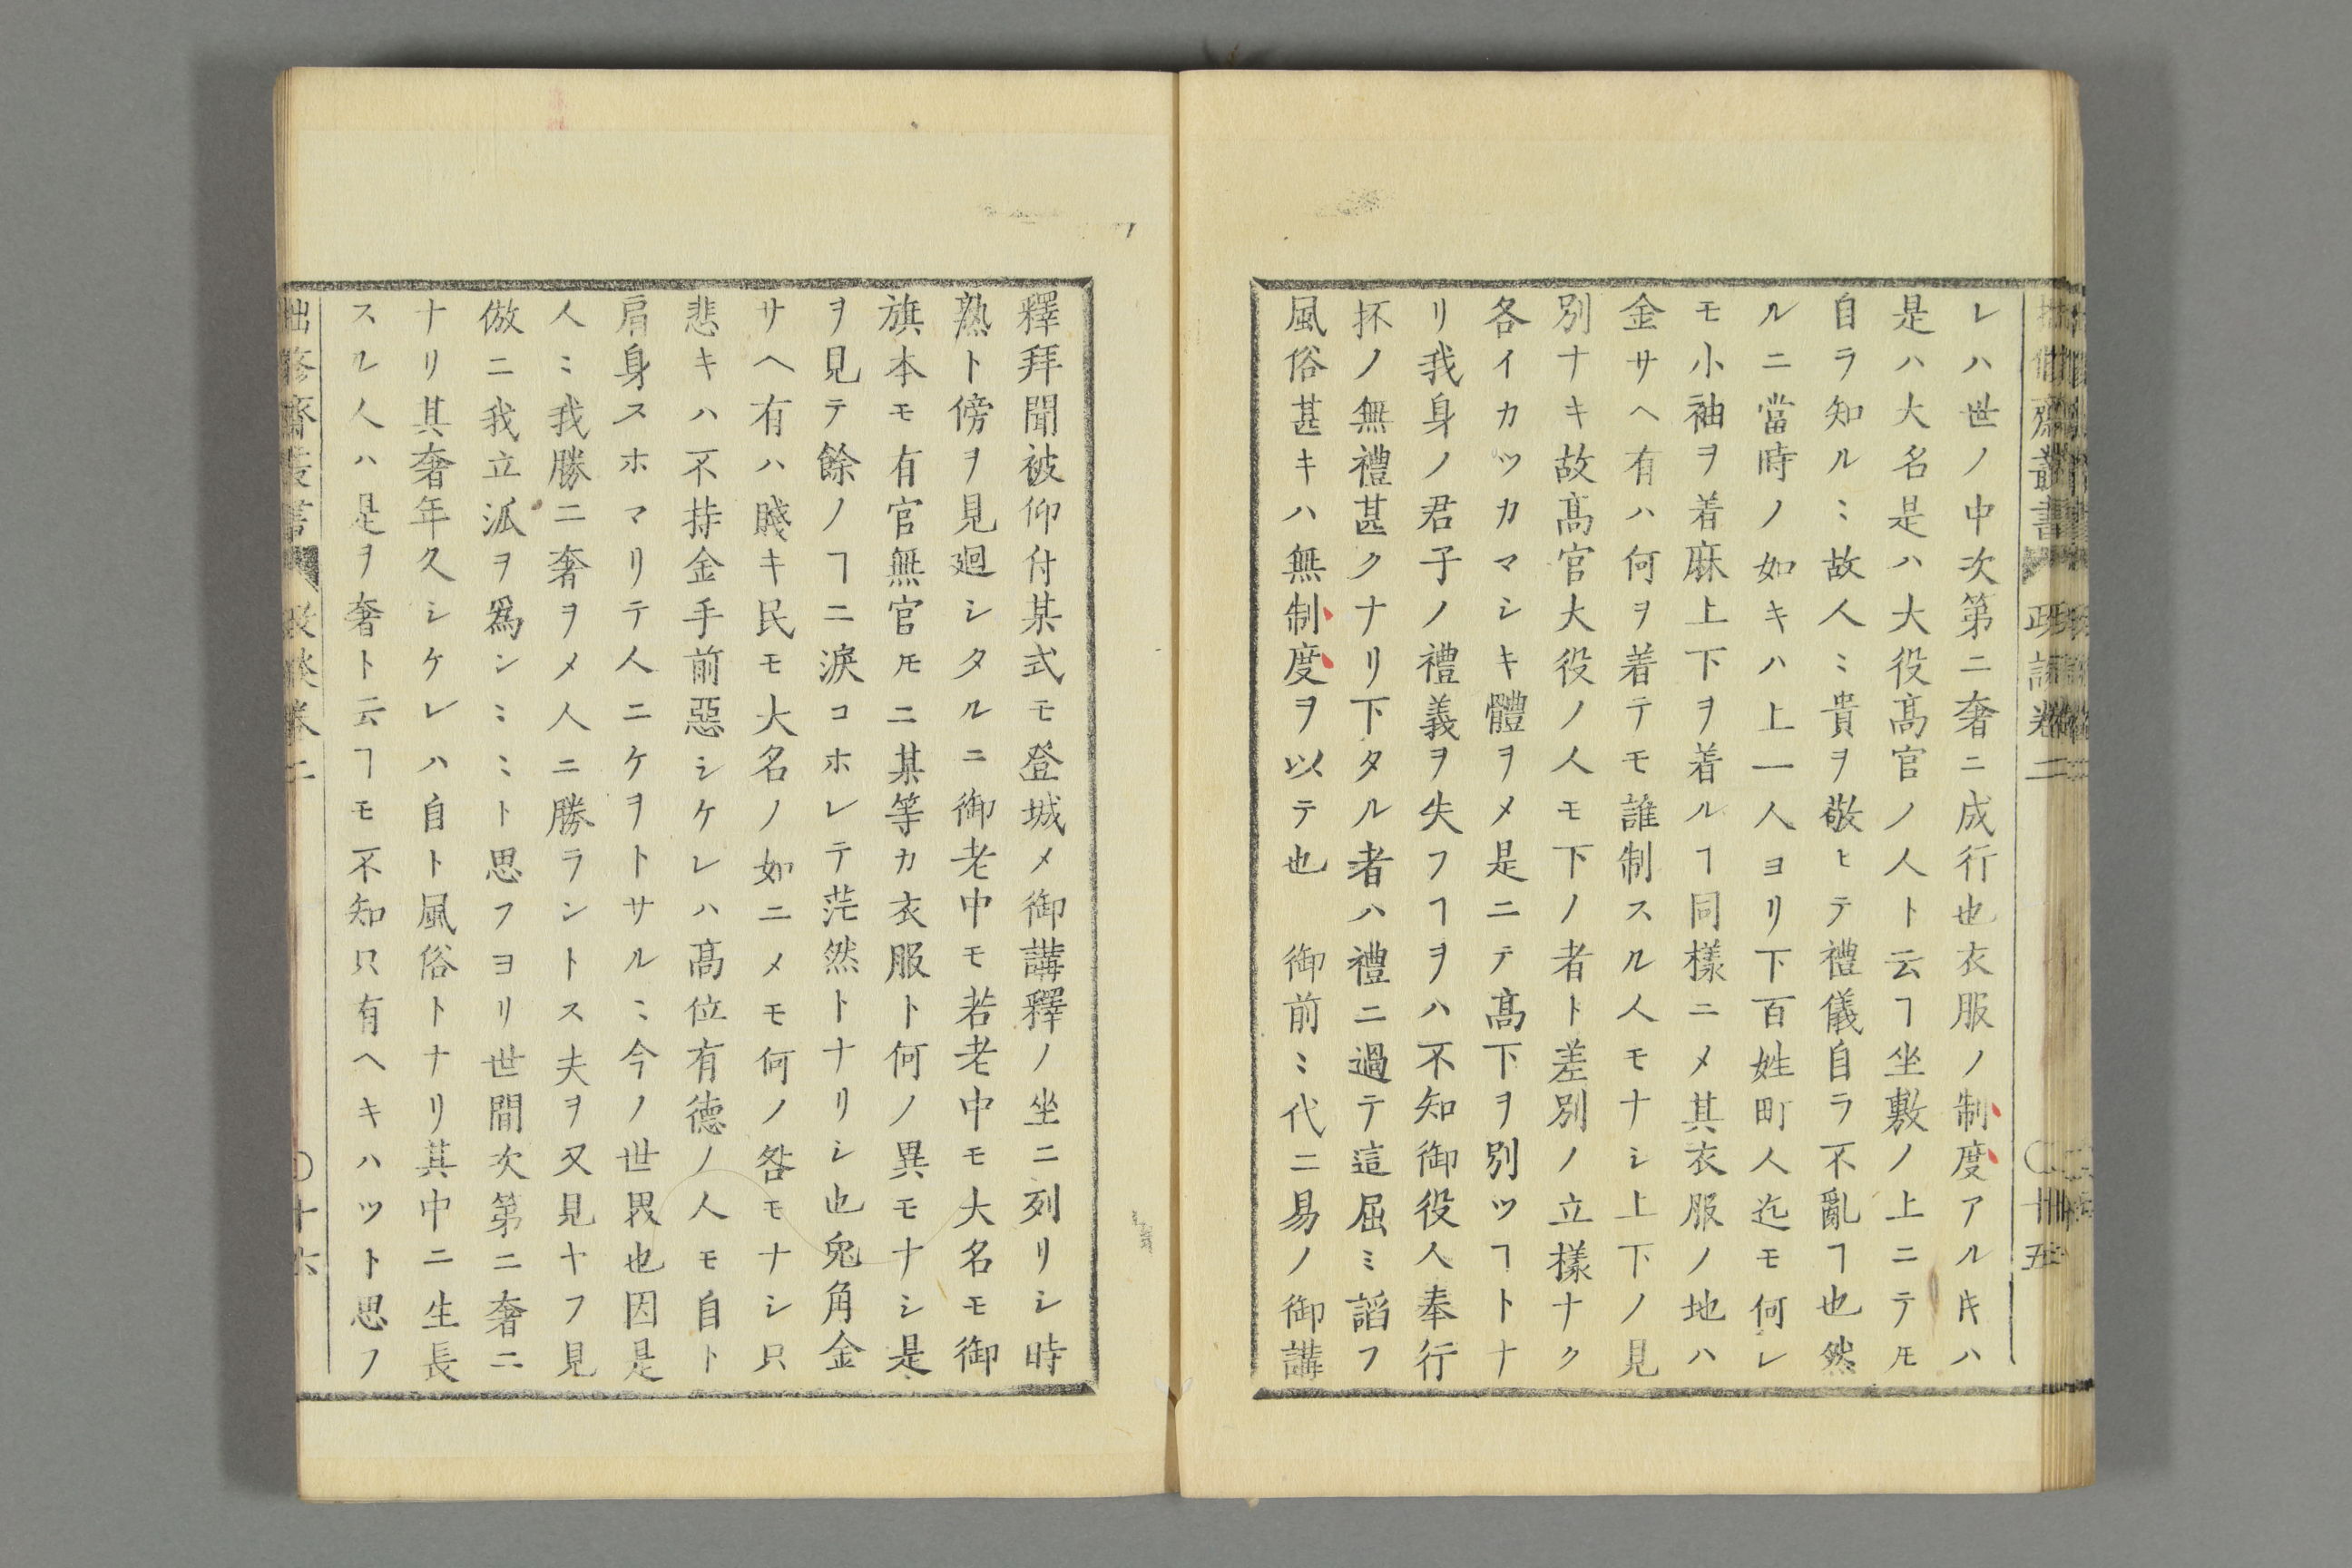 拙修齋叢書 政談卷二 〇十五
レハ世ノ中次第ニ奢ニ成行也衣服ノ制度アルキハ
是ハ大名是ハ大役髙官ノ人ト云ヿ坐敷ノ上ニテモ
自ラ知ルミ故人ミ貴ヲ敬ヒテ禮儀自ラ不亂ヿ也然
ルニ當時ノ如キハ上一人ヨリ下百姓町人迄モ何レ
モ小袖ヲ着麻上下ヲ着ルヿ同樣ニメ其衣服ノ地ハ
金サヘ有ハ何ヲ着テモ誰制スル人モナシ上下ノ見
別ナキ故髙官大役ノ人モ下ノ者ト差別ノ立樣ナク
各イカツカマシキ體ヲメ是ニテ髙下ヲ別ツヿトナ
リ我身ノ君子ノ禮義ヲ失フヿヲハ不知御役人奉行
抔ノ無禮甚クナリ下タル者ハ禮ニ過テ這屈ミ謟フ
風俗甚キハ無制度ヲ以テ也　御前ミ代ニ易ノ御講
釋拜聞被仰付某式モ登城メ御講釋ノ坐ニ列リシ時
熟ト傍ヲ見廻シタルニ御老中モ若老中モ大名モ御
旗本モ有官無官𪜈ニ某等カ衣服ト何ノ異モナシ是
ヲ見テ餘ノヿニ淚コホレテ茫然トナリシ也兔角金
サヘ有ハ賤キ民モ大名ノ如ニメモ何ノ咎モナシ只
悲キハ不持金手前惡シケレハ髙位有德ノ人モ自ト
肩身スホマリテ人ニケヲトサルミ今ノ世界也因是
人ミ我勝ニ奢ヲメ人ニ勝ラントス夫ヲ又見ヤフ見
倣ニ我立派ヲ爲ンミミト思フヨリ世間次第ニ奢ニ
ナリ其奢年久シケレハ自ト風俗トナリ其中ニ生長
スル人ハ是ヲ奢ト云ヿモ不知只有ヘキハツト思フ
拙修齋叢書 政談卷二 〇十六